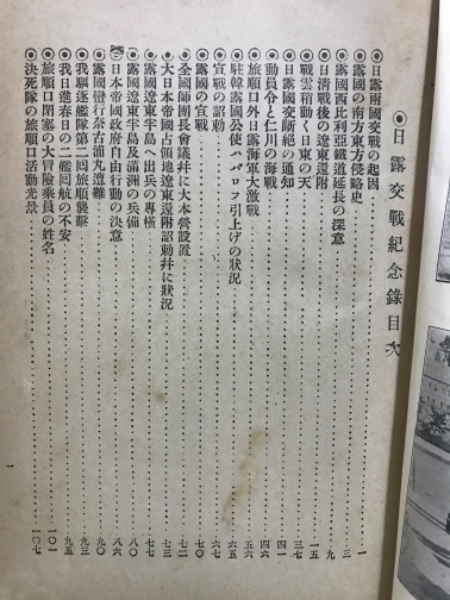 ◉日露交戰紀念錄目次
◉日露兩國交戰の起因……一
◉露國の南方東方侵略史……三
◉露國西比利亞鐵道延長の深意……九
◉日清戰後の遼東還附……一五
◉戰雲稍動く日東の天……三七
◉日露國交斷絕の通知……四一
◉動員令と仁川の海戰……四六
◉旅順口外日露海軍大激戰……五六
◉駐韓露國公使パバロフ引上げの狀況……六五
◉宣戰の詔勅……六七
◉露國の宣戰……七〇
◉全國師團長會議幷に大本營設置……七二
◉大日本帝國占領地遼東還附詔勅幷に狀況……七三
◉露國遼東半島へ出兵の專橫……七七
◉露國遼東半島及滿洲の兵備……八〇
◉日本帝國政府自由行動の決意……八六
◉露國蠻行奈古浦丸遭難……九〇
◉我驅逐艦隊第二回旅順襲擊……九三
◉我日進春日の二艦回航の不安……九五
◉旅順口閉塞の大冒險乘員の姓名……一〇一
◉決死隊の旅順口活動光景……一〇七
1